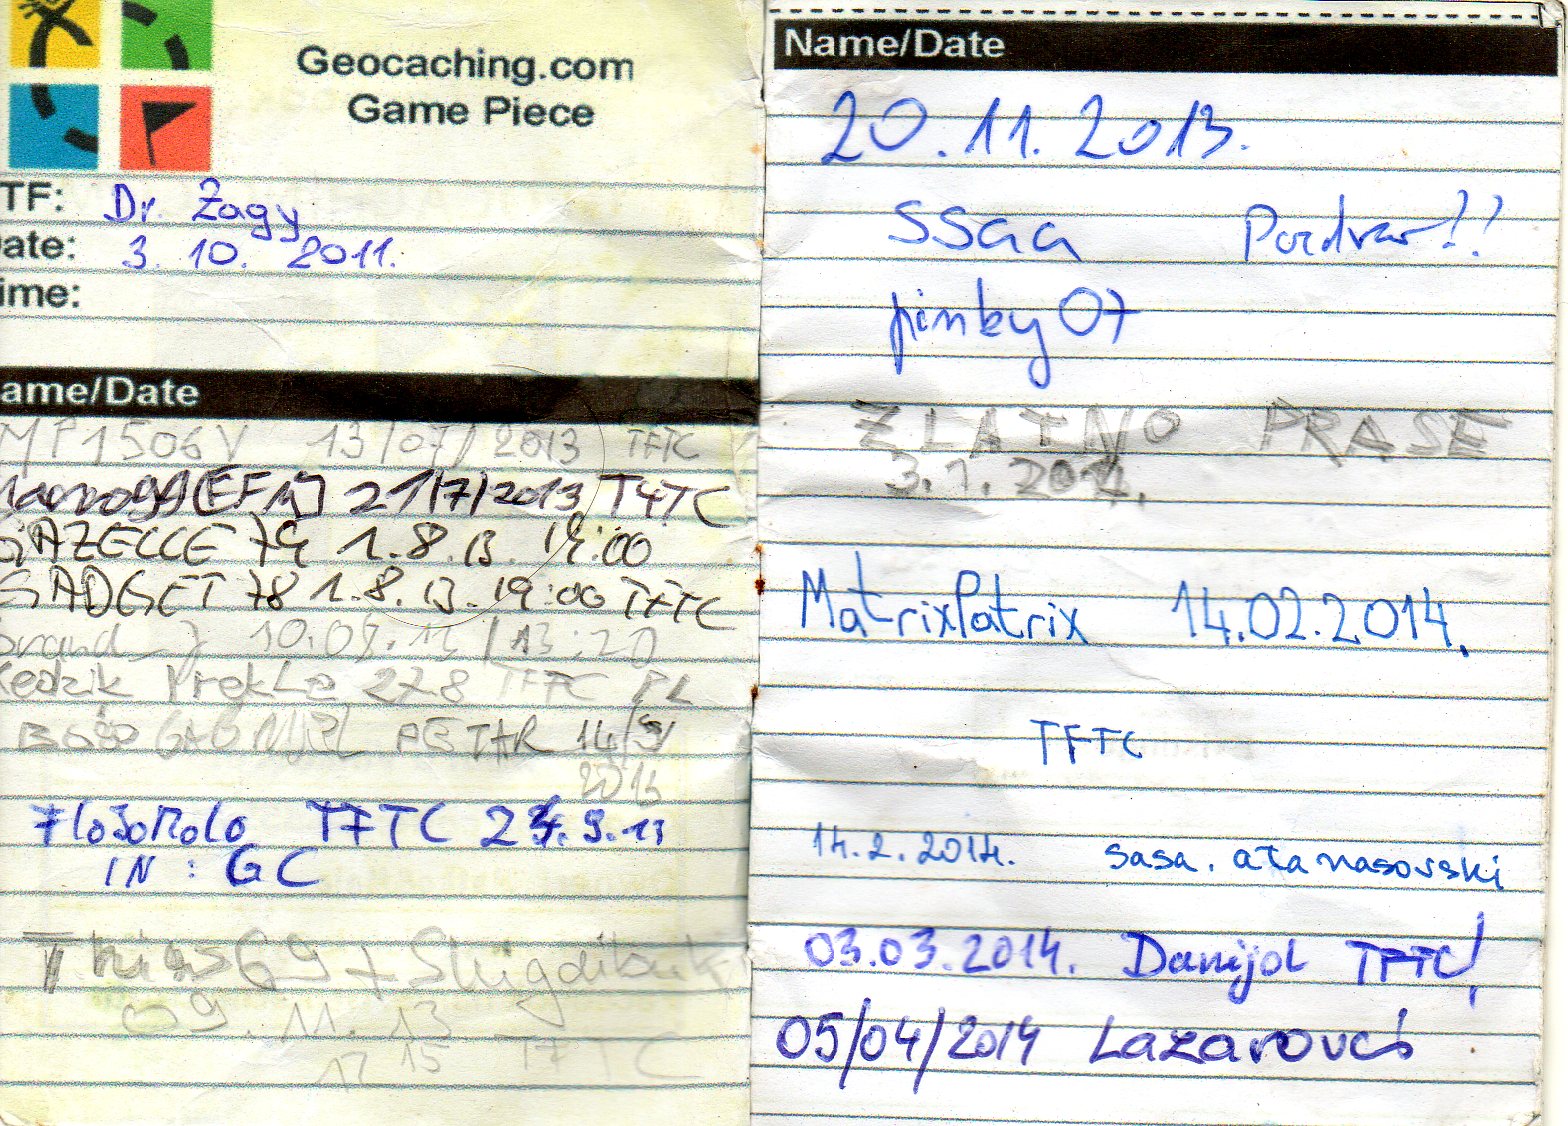 Geocaching.com
Game Piece
TF: Dr. Žagy
ate: 3. 10. 2011.
ime:
ame/Date
MP1506V 13/07/2013 TFTC
21/7/2013 TFTC
GAZELLE 79 1.8.13. 19:00
GADGET 78 1.8.13. 19:00 TFTC
13:20
278 TFTC PL
PETAR 14/9/
2013
TFTC 9.13
IN: GC
09.11.13
TFTC
Name/Date
20.11.2013.
ssaa Pozdrav!!
pinky07
ZLATNO PRASE
3.1.2014.
MatrixPatrix 14.02.2014.
TFTC
14.2.2014. sasa.atanasovski
03.03.2014. Danijel TFTC!
05/04/2014